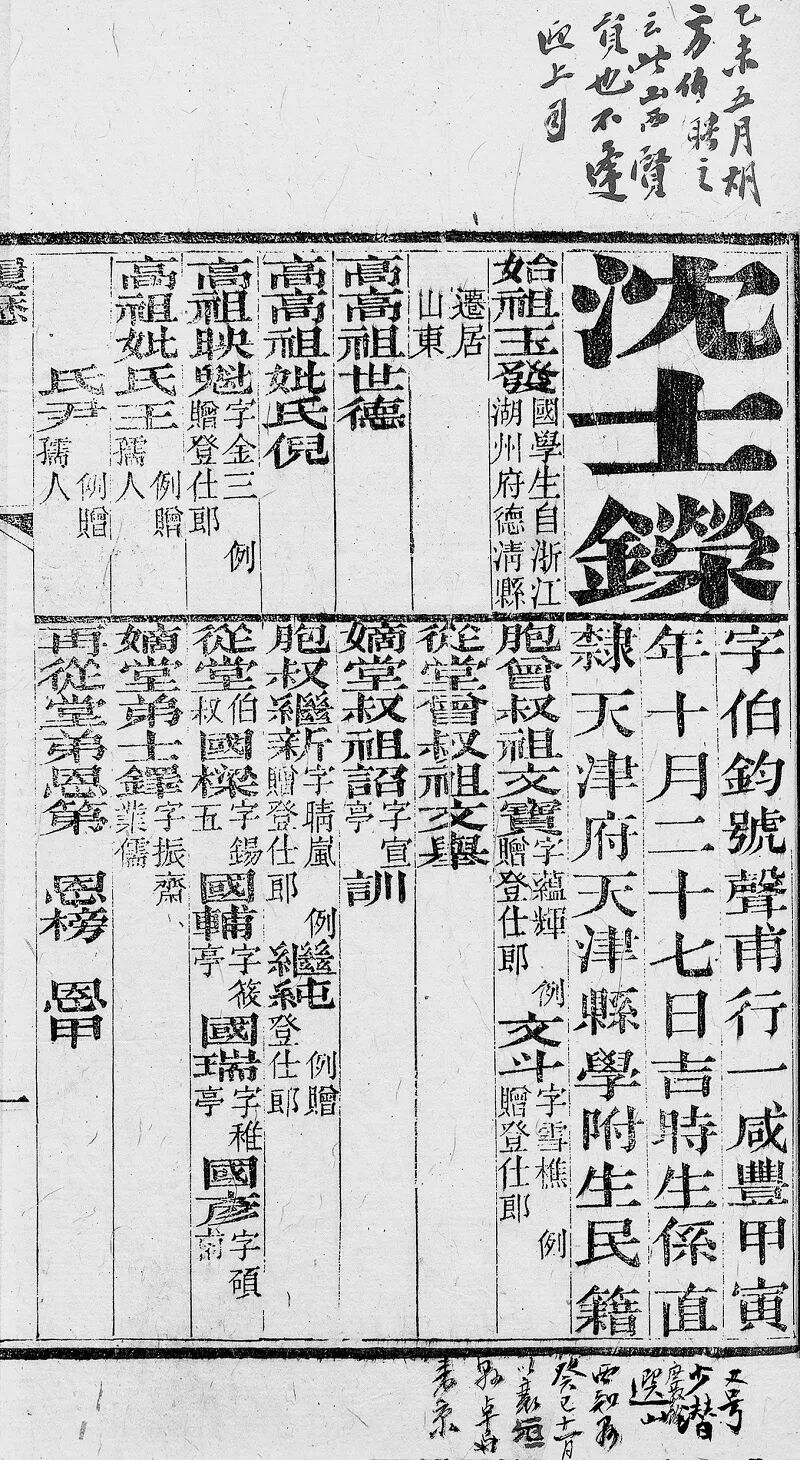 乙未五月胡
方伯聘之
云此山西賢
員也不逢
迎上司
沈士鑅
始祖玉發國學生自浙江湖州府德淸縣
遷居山東
高高祖世德
高高祖妣氏倪
高祖映魁字金三例贈登仕郎
高祖妣氏王例贈孺人
氏尹例贈孺人
履歷
字伯鈞號聲甫行一咸豐甲寅
年十月二十七日吉時生係直
隸天津府天津縣學附生民籍
胞曾叔祖文寶字蘊輝例贈登仕郎文斗字雪樵例贈登仕郎
從堂曾叔祖文舉
嫡堂叔祖詔字宣亭訓
胞叔繼新字晴嵐例贈登仕郎繼純例贈登仕郎
從堂伯叔國樑字錫五國輔字筱亭國瑞字稚亭國彥字碩甫
嫡堂弟士鐸字振齋業儒
再從堂弟恩第恩榜恩甲
一
又号
少潜
選山
西知縣
癸巳十一月
以襄垣
縣卓異
来京